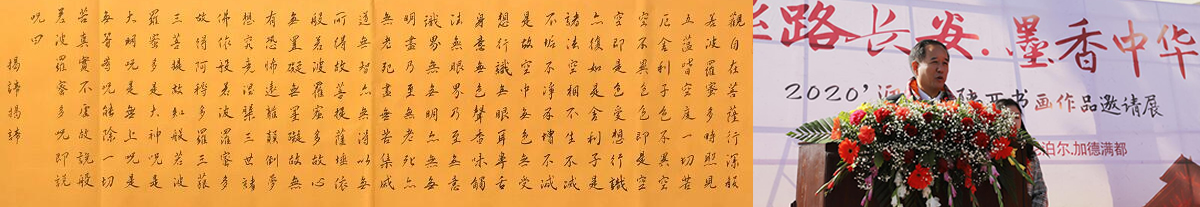 觀自在菩薩行深般
若波羅蜜多時照見
五蘊皆空度一切苦
厄舍利子色不異空
空不異色色即是空
空即是色受想行識
亦復如是舍利子是
諸法空相不生不滅
不垢不淨不增不減
是故空中無色無受
想行識無眼耳鼻舌
身意無色聲香味觸
法無眼界乃至無意
識界無無明亦無無
明盡乃至無老死亦
無老死盡無苦集滅
道無智亦無得以無
所得故菩提薩埵依
般若波羅蜜多故心
無罣礙無罣礙故無
有恐怖遠離顛倒夢
想究竟涅槃三世諸
佛依般若波羅蜜多
故得阿耨多羅三藐
三菩提故知般若波
羅蜜多是大神咒是
大明咒是無上咒是
無等等咒能除一切
苦真實不虛故說般
若波羅蜜多咒即說
咒曰
揭諦揭諦
丝路长安.墨香中华
2020' 书画作品邀请展
泊尔.加德满都